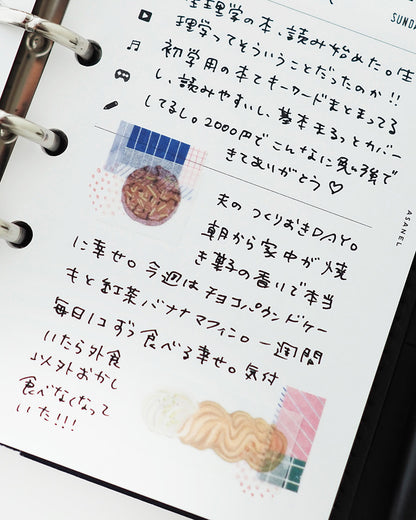 SUNDA
生理学の本、読み始めた。生
理学ってそういうことだったのか!!
初学用の本でキーワードまとまってる
し、読みやすいし、基本まるっとカバー
してるし。2000円でこんなに見応
きてありがとう♡
SANEL
夫のつくりおきDAY。
朝から家中が焼
き菓子の香いで本当
に幸せ。今週はチョコパウンドケー
キと紅茶バナナマフィン。一週間
毎日1コずつ食べる幸せ。気付
いたら外食
以外おかし
食べなくなって
いた!!!